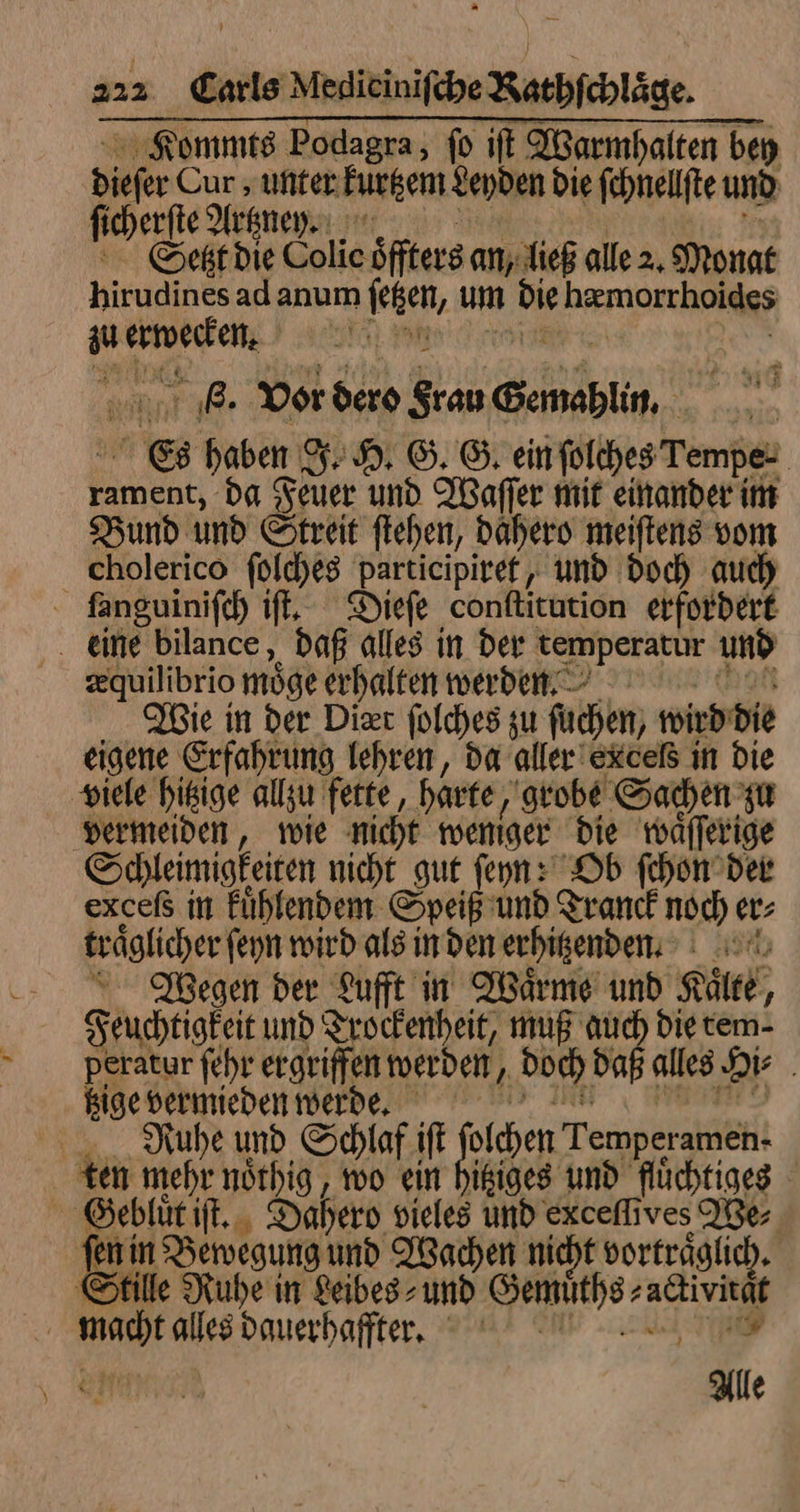 222 Carls Mediciniſche Rathſchlåge.
Kommts Podagra, ſo iſt Warmhalten bey
dieſer Cur, unter kurtzem Leyden die ſchnellſte und
ſicherſte Artzney.
Setzt die Colic oͤffters an, ließ alle 2. Monat
hirudines ad anum ſetzen, um die hæmorrhoides
zu erwecken.
β. Vor dero Frau Gemahlin.
Es haben J. H. G. G. ein ſolches Tempe-
rament, da Feuer und Waſſer mit einander im
Bund und Streit ſtehen, dahero meiſtens vom
cholerico ſolches participiret, und doch auch
ſanguiniſch iſt. Dieſe conſtitution erfordert
eine bilance, daß alles in der temperatur und
æquilibrio moͤge erhalten werden.
Wie in der Diæt ſolches zu ſuchen, wird die
eigene Erfahrung lehren, da aller exceſs in die
viele hitzige allzu fette, harte, grobe Sachen zu
vermeiden, wie nicht weniger die waͤſſerige
Schleimigkeiten nicht gut ſeyn: Ob ſchon der
exceſs in kuͤhlendem Speiß und Tranck noch er-
traͤglicher ſeyn wird als in den erhitzenden.
Wegen der Lufft in Waͤrme und Kaͤlte,
Feuchtigkeit und Trockenheit, muß auch die tem-
peratur ſehr ergriffen werden, doch daß alles Hi-
tzige vermieden werde.
Ruhe und Schlaf iſt ſolchen Temperamen-
ten mehr noͤthig, wo ein hitziges und fluͤchtiges
Gebluͤt iſt. Dahero vieles und exceſſives We-
ſen in Bewegung und Wachen nicht vortraͤglich.
Stille Ruhe in Leibes- und Gemuͤths-activitaͤt
macht alles dauerhaffter.
Alle